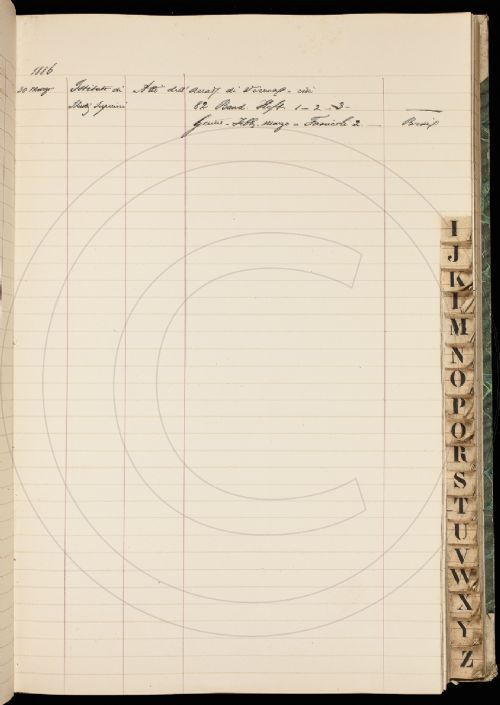 1886
30 Marzo Istituto di Atti dell' Accad. di Vienna - cioè
Studj Superiori 82 Band. Heft. 1 - 2 - 3 -
Genn. - Febb. Marzo = Fascicoli 2
I
J
K
L
M
N
O
P
Q
R
S
T
U
V
W
X
Y
Z